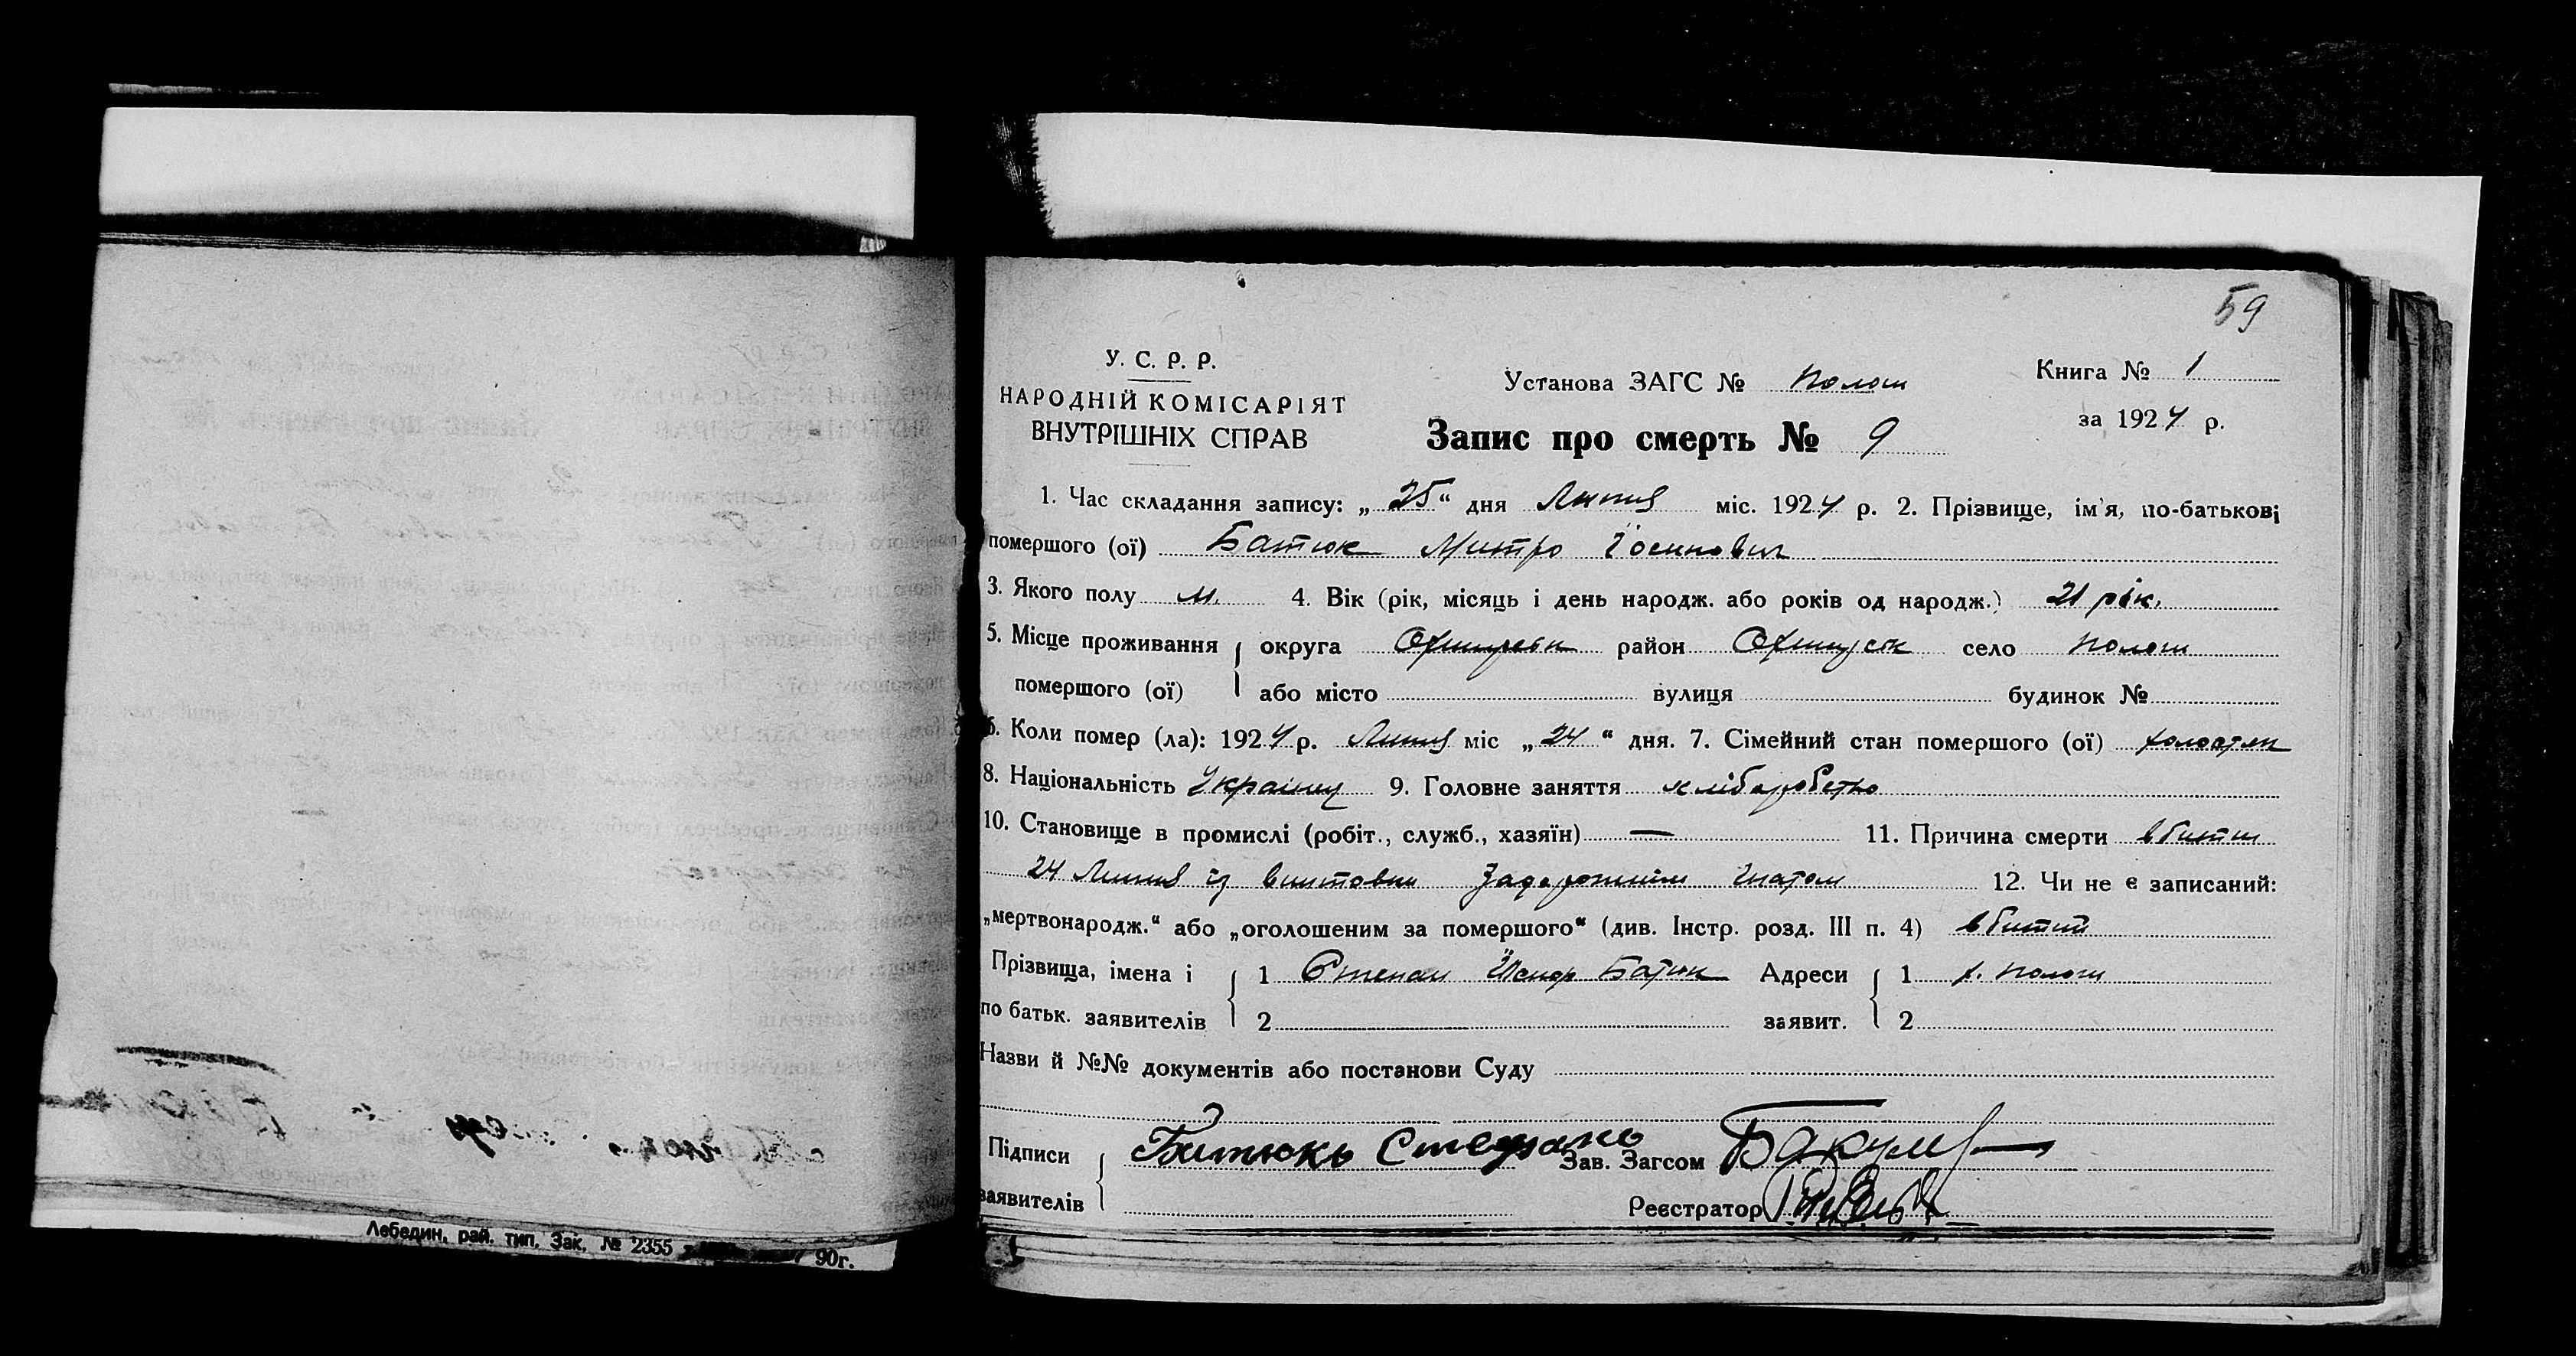 59
У. С. Р. Р.
НАРОДНІЙ КОМІСАРІЯТ
ВНУТРІШНІХ СПРАВ
Установа ЗАГС №
Книга № 1
за 1924 р.
Запис про смерть № 9
1. Час складання запису: „ 25 “ дня Липня міс. 1924 р. 2. Прізвище, ім'я, по-батькові
помершого (ої) Батюк Митро Йосипович
3. Якого полу м. 4. Вік (рік, місяць і день народж. або років од народж.) 21 рік.
5. Місце проживання округа район село
помершого (ої) або місто вулиця будинок №
6. Коли помер (ла): 1924 р. Липня міс „ 24 “ дня. 7. Сімейний стан помершого (ої) холостяк
8. Національність Українец 9. Головне заняття хліборобство
10. Становище в промислі (робіт., служб., хазяїн) — 11. Причина смерти вбитий
24 Липня із винтовки Гнатом 12. Чи не є записаний:
„мертвонародж.“ або „оголошеним за помершого“ (див. Інстр. розд. III п. 4) вбитий
Прізвища, імена і 1 Степан Батюк Адреси 1
по батьк. заявителів 2 заявит. 2
Назви й №№ документів або постанови Суду
Підписи Батюкь Зав. Загсом
заявителів Реєстратор
Лебедин, рай. тип. Зак. № 2355 90г.